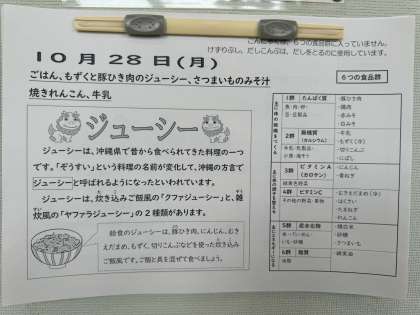 こんだては、6つの食品群に入っていません。
けずりぶし、だしこんぶは、だしをとるのに使用しています。
10月28日(月)
ごはん、もずくと豚ひき肉のジューシー、さつまいものみそ汁
焼きれんこん、牛乳
6つの食品群
ジューシー
ジューシーは、沖縄県で昔から食べられてきた料理の一
つです。「ぞうすい」という料理の名前が変化して、沖縄の方言で
ジューシーと呼ばれるようになったといわれています。
ジューシーは、炊き込みご飯風の「クファジューシー」と、雑
炊風の「ヤファラジューシー」の2種類があります。
給食のジューシーは、豚ひき肉、にんじん、むき
えだまめ、もずく、切りこんぶなどを使った炊き込み
ご飯風です。ご飯と具を混ぜて食べましょう。
1群 たんぱく質
魚・肉・卵・
豆・豆製品
・豚ひき肉
・鶏肉
・赤みそ
・白みそ
2群 無機質
(カルシウム)
牛乳・乳製品・
小魚・海そう
・牛乳
・もずく(冷)
・切りこんぶ
・にぼし
3群 ビタミンA
(カロテン)
緑黄色野菜
・にんじん
4群 ビタミンC
その他の野菜・果物
・むきえだまめ(冷)
・はくさい
・たまねぎ
・れんこん
5群 炭水化物
米・パン・めん・
いも・砂糖
・精白米
・砂糖
・さつまいも
6群 脂質
油脂